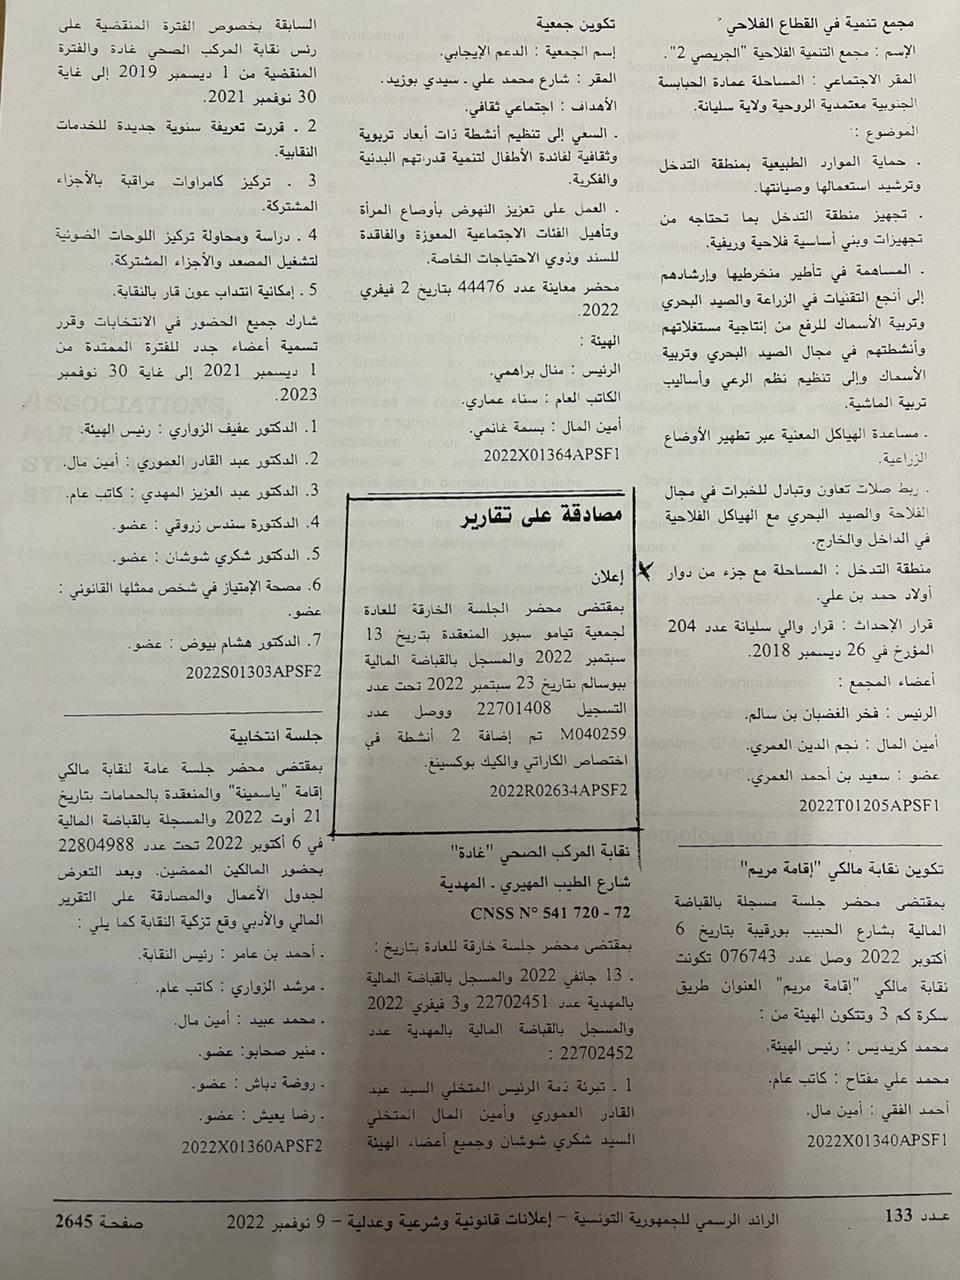 مجمع تنمية في القطاع الفلاحي
الإسم : مجمع التنمية الفلاحية "الجريصي 2".
المقر الاجتماعي : المساحلة عمادة الحبابسة
الجنوبية معتمدية الروحية ولاية سليانة.
الموضوع :
. حماية الموارد الطبيعية بمنطقة التدخل
وترشيد استعمالها وصيانتها.
. تجهيز منطقة التدخل بما تحتاجه من
تجهيزات وبني أساسية فلاحية وريفية.
. المساهمة في تأطير منخرطيها وإرشادهم
إلى أنجع التقنيات في الزراعة والصيد البحري
وتربية الأسماك للرفع من إنتاجية مستغلاتهم
وأنشطتهم في مجال الصيد البحري وتربية
الأسماك وإلى تنظيم نظم الرعي وأساليب
تربية الماشية.
. مساعدة الهياكل المعنية عبر تطهير الأوضاع
الزراعية.
. ربط صلات تعاون وتبادل للخبرات في مجال
الفلاحة والصيد البحري مع الهياكل الفلاحية
في الداخل والخارج.
منطقة التدخل : المساحلة مع جزء من دوار
أولاد حمد بن علي.
قرار الإحداث : قرار والي سليانة عدد 204
المؤرخ في 26 ديسمبر 2018.
أعضاء المجمع :
الرئيس : فخر الغضبان بن سالم.
أمين المال : نجم الدين العمري.
عضو : سعيد بن أحمد العمري.
2022T01205APSF1
تكوين نقابة مالكي "إقامة مريم"
بمقتضى محضر جلسة مسجلة بالقباضة
المالية بشارع الحبيب بورقيبة بتاريخ 6
أكتوبر 2022 وصل عدد 076743 تكونت
نقابة مالكي "إقامة مريم" العنوان طريق
سكرة كم 3 وتتكون الهيئة من :
محمد كريديس : رئيس الهيئة.
محمد علي مفتاح : كاتب عام.
أحمد الفقي : أمين مال.
2022X01340APSF1
تكوين جمعية
إسم الجمعية : الدعم الإيجابي.
المقر : شارع محمد علي ـ سيدي بوزيد.
الأهداف : اجتماعي ثقافي.
. السعي إلى تنظيم أنشطة ذات أبعاد تربوية
وثقافية لفائدة الأطفال لتنمية قدراتهم البدنية
والفكرية.
. العمل على تعزيز النهوض بأوضاع المرأة
وتأهيل الفئات الاجتماعية المعوزة والفاقدة
للسند وذوي الاحتياجات الخاصة.
محضر معاينة عدد 44476 بتاريخ 2 فيفري
2022.
الهيئة :
الرئيس : منال براهمي.
الكاتب العام : سناء عماري.
أمين المال : بسمة غانمي.
2022X01364APSF1
مصادقة على تقارير
إعلان
بمقتضى محضر الجلسة الخارقة للعادة
لجمعية تيامو سبور المنعقدة بتاريخ 13
سبتمبر 2022 والمسجل بالقباضة المالية
ببوسالم بتاريخ 23 سبتمبر 2022 تحت عدد
التسجيل 22701408 ووصل عدد
M040259 تم إضافة 2 أنشطة في
اختصاص الكاراتي والكيك بوكسينغ.
2022R02634APSF2
نقابة المركب الصحي "غادة"
شارع الطيب المهيري ـ المهدية
CNSS N° 541 720 - 72
بمقتضى محضر جلسة خارقة للعادة بتاريخ :
. 13 جانفي 2022 والمسجل بالقباضة المالية
بالمهدية عدد 22702451 و3 فيفري 2022
والمسجل بالقباضة المالية بالمهدية عدد
22702452 :
1 . تبرئة ذمة الرئيس المتخلي السيد عبد
القادر العموري وأمين المال المتخلي
السيد شكري شوشان وجميع أعضاء الهيئة
السابقة بخصوص الفترة المنقضية على
رئس نقابة المركب الصحي غادة والفترة
المنقضية من 1 ديسمبر 2019 إلى غاية
30 نوفمبر 2021.
2 . قررت تعريفة سنوية جديدة للخدمات
النقابية.
3 . تركيز كامراوات مراقبة بالأجزاء
المشتركة.
4 . دراسة ومحاولة تركيز اللوحات الضوئية
لتشغيل المصعد والأجزاء المشتركة.
5 . إمكانية انتداب عون قار بالنقابة.
شارك جميع الحضور في الانتخابات وقرر
تسمية أعضاء جدد للفترة الممتدة من
1 ديسمبر 2021 إلى غاية 30 نوفمبر
2023.
1. الدكتور عفيف الزواري : رئيس الهيئة.
2. الدكتور عبد القادر العموري : أمين مال.
3. الدكتور عبد العزيز المهدي : كاتب عام.
4. الدكتورة سندس زروقي : عضو.
5. الدكتور شكري شوشان : عضو.
6. مصحة الإمتياز في شخص ممثلها القانوني :
عضو.
7. الدكتور هشام بيوض : عضو.
2022S01303APSF2
جلسة انتخابية
بمقتضى محضر جلسة عامة لنقابة مالكي
إقامة "ياسمينة" والمنعقدة بالحمامات بتاريخ
21 أوت 2022 والمسجلة بالقباضة المالية
في 6 أكتوبر 2022 تحت عدد 22804988
بحضور المالكين الممضين. وبعد التعرض
لجدول الأعمال والمصادقة على التقرير
المالي والأدبي وقع تزكية النقابة كما يلي :
. أحمد بن عامر : رئيس النقابة.
. مرشد الزواري : كاتب عام.
. محمد عبيد : أمين مال.
. منير صحابو: عضو.
. روضة دباش : عضو.
. رضا يعيش : عضو.
2022X01360APSF2
عـدد 133
الرائد الرسمي للجمهورية التونسية – إعلانات قانونية وشرعية وعدلية – 9 نوفمبر 2022
صفحة 2645